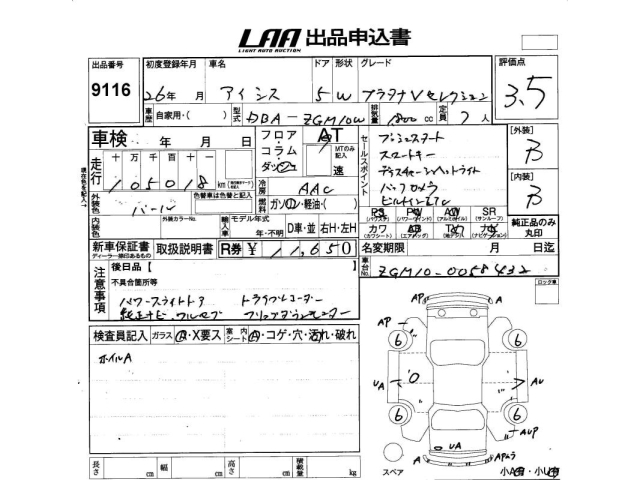 LAA 出品申込書
LIGHT AUTO AUCTION
出品番号 9116
初度登録年月 車名 ドア 形状 グレード 評価点
26年 月 アイシス 5 W プラタナVセレクション 3.5
車歴 自家用・( ) 型式 DBA-ZGM10W 排気量 1800 cc 定員 7人
車検 年 月 日
フロア コラム ダッシュ AT MTのみ記入 速
セールスポイント
プッシュスタート
スマートキー
ディスチャージヘッドライト
バックカメラ
ビルトインETC
[外装] B
[内装] B
走行 十万千百十 105018 km
現在色を記入
冷房 AAC
燃料 ガソリン・軽油・( )
外装色 パール 色替車は色替と記入
内装色 外装カラーNo. 輸入車 モデル年式 年・不明 D車・並 右H・左H
PS PW AW SR
(パワステ) (パワーウィンド) (アルミホイル) (サンルーフ)
カワ AB TV ナビ
(カワシート) (エアバッグ) (ナビゲーション)
純正品のみ丸印
新車保証書 ディーラー印あるもの 取扱説明書 R券 ¥11,650
名変期限 月 日迄
注意事項
後日品【 】
不具合箇所等
パワースライドドア ドライブレコーダー
純正ナビ・フルセグ フリップダウンモニター
車台No. ZGM10-0058432
ロック車
検査員記入 ガラス A・X要ス 案内シート A・コゲ・穴・汚れ・破れ
ホイルA
A A
AP
6 6
UA 0 AU
6 6
AUP
UA
A APムラ A
スペア
小A 小U
長さ cm 幅 cm 高さ cm 積載量 kg